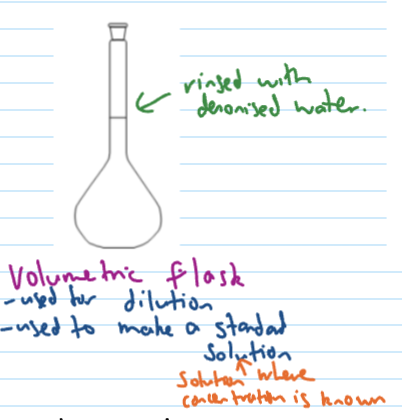 rinsed with
denonised water.
Volumetric flask
-used for dilution
-used to make a standad
solution
Solution where
concentration is known